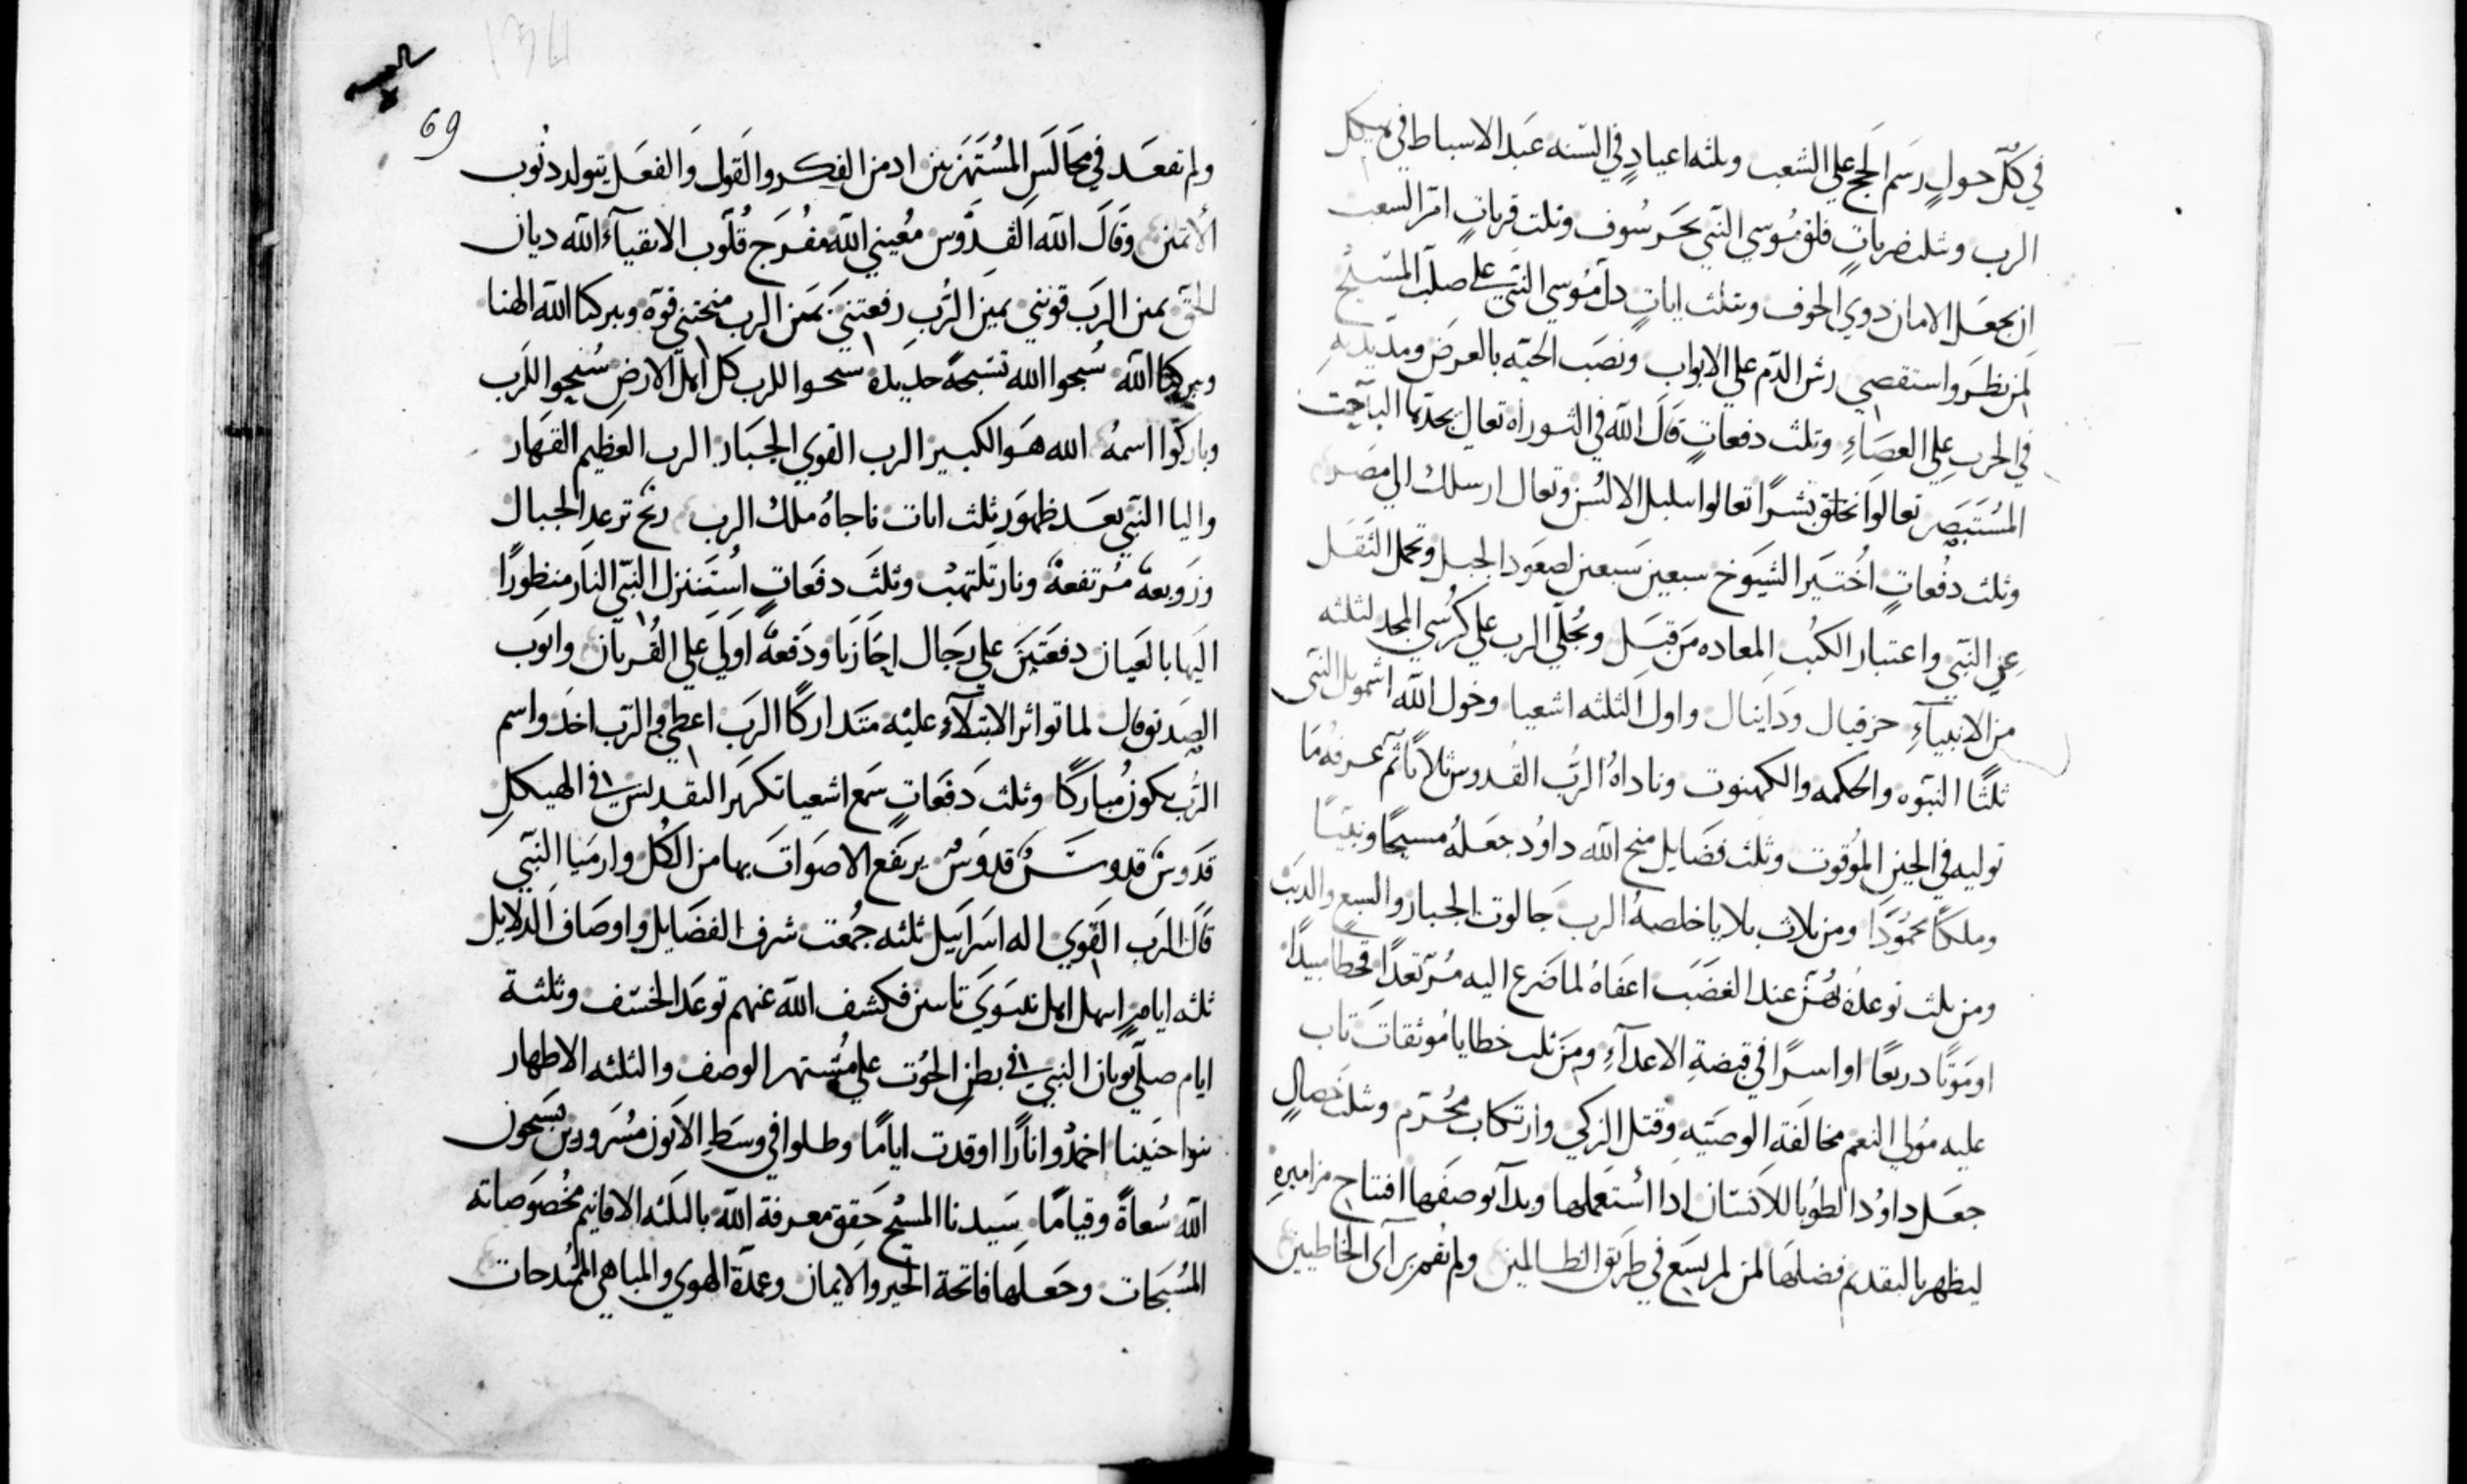 في كل حول رسم الحج علي الشعب وثلثه اعياد في السنه عبد الاسباط في هيكل
الرب وبثلث ضربات فلق موسي النبي بحر سوف وثلث قربات امر الشعب
ان يجعل الامان دوي الخوف وبثلث ايات دل موسي النبي علي صلب المسيح
لمن نظر واستقصي رش الدم علي الابواب ونصب الحيه بالعرض ومد يديه
في الحرب علي العصاء وثلث دفعات قال الله في التوراه تعال بحدتها الباحث
المستبصر تعالوا نخلق بشرا تعالوا نبلبل الالسن وتعال ارسلك الي مصر
وثلث دفعات اختير الشيوخ سبعين سبعين لصعود الجبل وتحمل الثقل
عن النبي واعتبار الكتب المعاده من قبل وتجلي الرب علي كرسي المجد لثلثه
من الانبياء حزقيال ودانيال واول الثلثه اشعيا وخول الله اشمويل النبي
ثلثا النبوه والحكمه والكهنوت وناداه الرب القدوس ثلاثا ثم عرفه ما
توليه في الحين الموقوت وثلث فضايل منح الله داود جعله مسيحا ونبيا
وملكا محمودا ومن ثلاث بلايا خلصه الرب جالوت الجبار والسبع والدب
ومن ثلث توعده بهن عند الغضب اعفاه لما ضرع اليه مرتعدا قحطا مبيدا
او موتا دريعا او اسرا في قبضة الاعداء ومن ثلث خطايا موثقات تاب
عليه مولي النعم مخالفة الوصيه وقتل الزكي وارتكاب محرم وبثلث خصال
جعل داود الطوبا للانسان ادا استعملها وبدا بوصفها افتتاح مزاميره
ليظهر بالتقديم فضلها لمن لم يسع في طريق الظالمين ولم يقم براي الخاطيين
69
ولم تقعد في مجالس المستهزيين اد من الفكر والقول والفعل يتولد دنوب
الاثمين وقال الله القدوس معيني الله مفرج قلوب الاتقياء الله ديان
الحق يمين الرب قوتني يمين الرب رفعتني يمين الرب منحتني قوه ويبركنا الله الهنا
ويبركنا الله سبحوا الله تسبحة جديدة سبحوا للرب كل اهل الارض سبحوا للرب
وباركوا اسمه الله هو الكبير الرب القوي الجبار الرب العظيم القهار
واليا النبي بعد ظهور ثلث ايات ناجاه ملك الرب ريح ترعد الجبال
وزوبعه مرتفعة ونار تلتهب وثلث دفعات استنزل النبي النار منظورا
اليها بالعيان دفعتين علي رجال احازيا ودفعة اولي علي القربان وايوب
الصديق قال لما تواتر الابتلاء عليه متداركا الرب اعطي والرب اخد واسم
الرب يكون مباركا وثلث دفعات سمع اشعيا تكرير التقديس في الهيكل
قدوس قدوس قدوس يرتفع الاصوات بها من الكل وارميا النبي
قال الرب القوي اله اسراييل ثلثه جمعت شرف الفضايل واوصاف الدلايل
ثلثه ايام ابتهل اهل نينوي تاسين فكشف الله عنهم توعد الخسف وثلثة
ايام صلي يونان النبي في بطن الحوت علي مشتهر الوصف والثلثه الاطهار
بنوا حنينا اخمدوا نارا اوقدت اياما وظلوا في وسط الاتون مسرورين يسبحون
الله سعاة وقياما سيدنا المسيح حقق معرفة الله بالثلثه الاقانيم مخصوصاته
المسبحات وجعلها فاتحة الخير والايمان وعمدة الهوي والمباهي الممتدحات